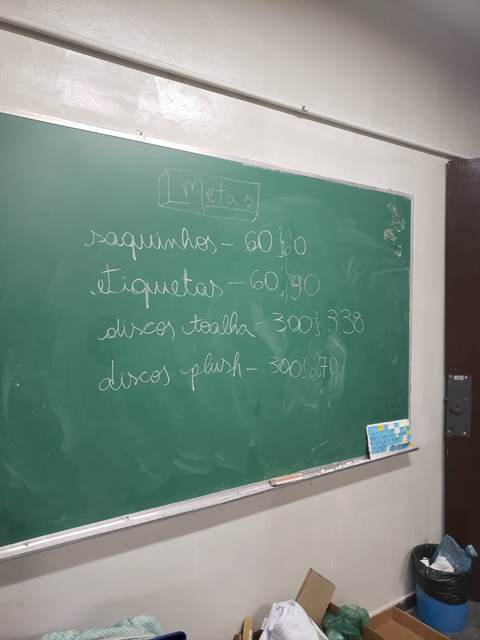 Metas
saquinhos - 60 } 60
etiquetas - 60 } 90
discos toalha - 300 } 338
discos plush - 300 } 270